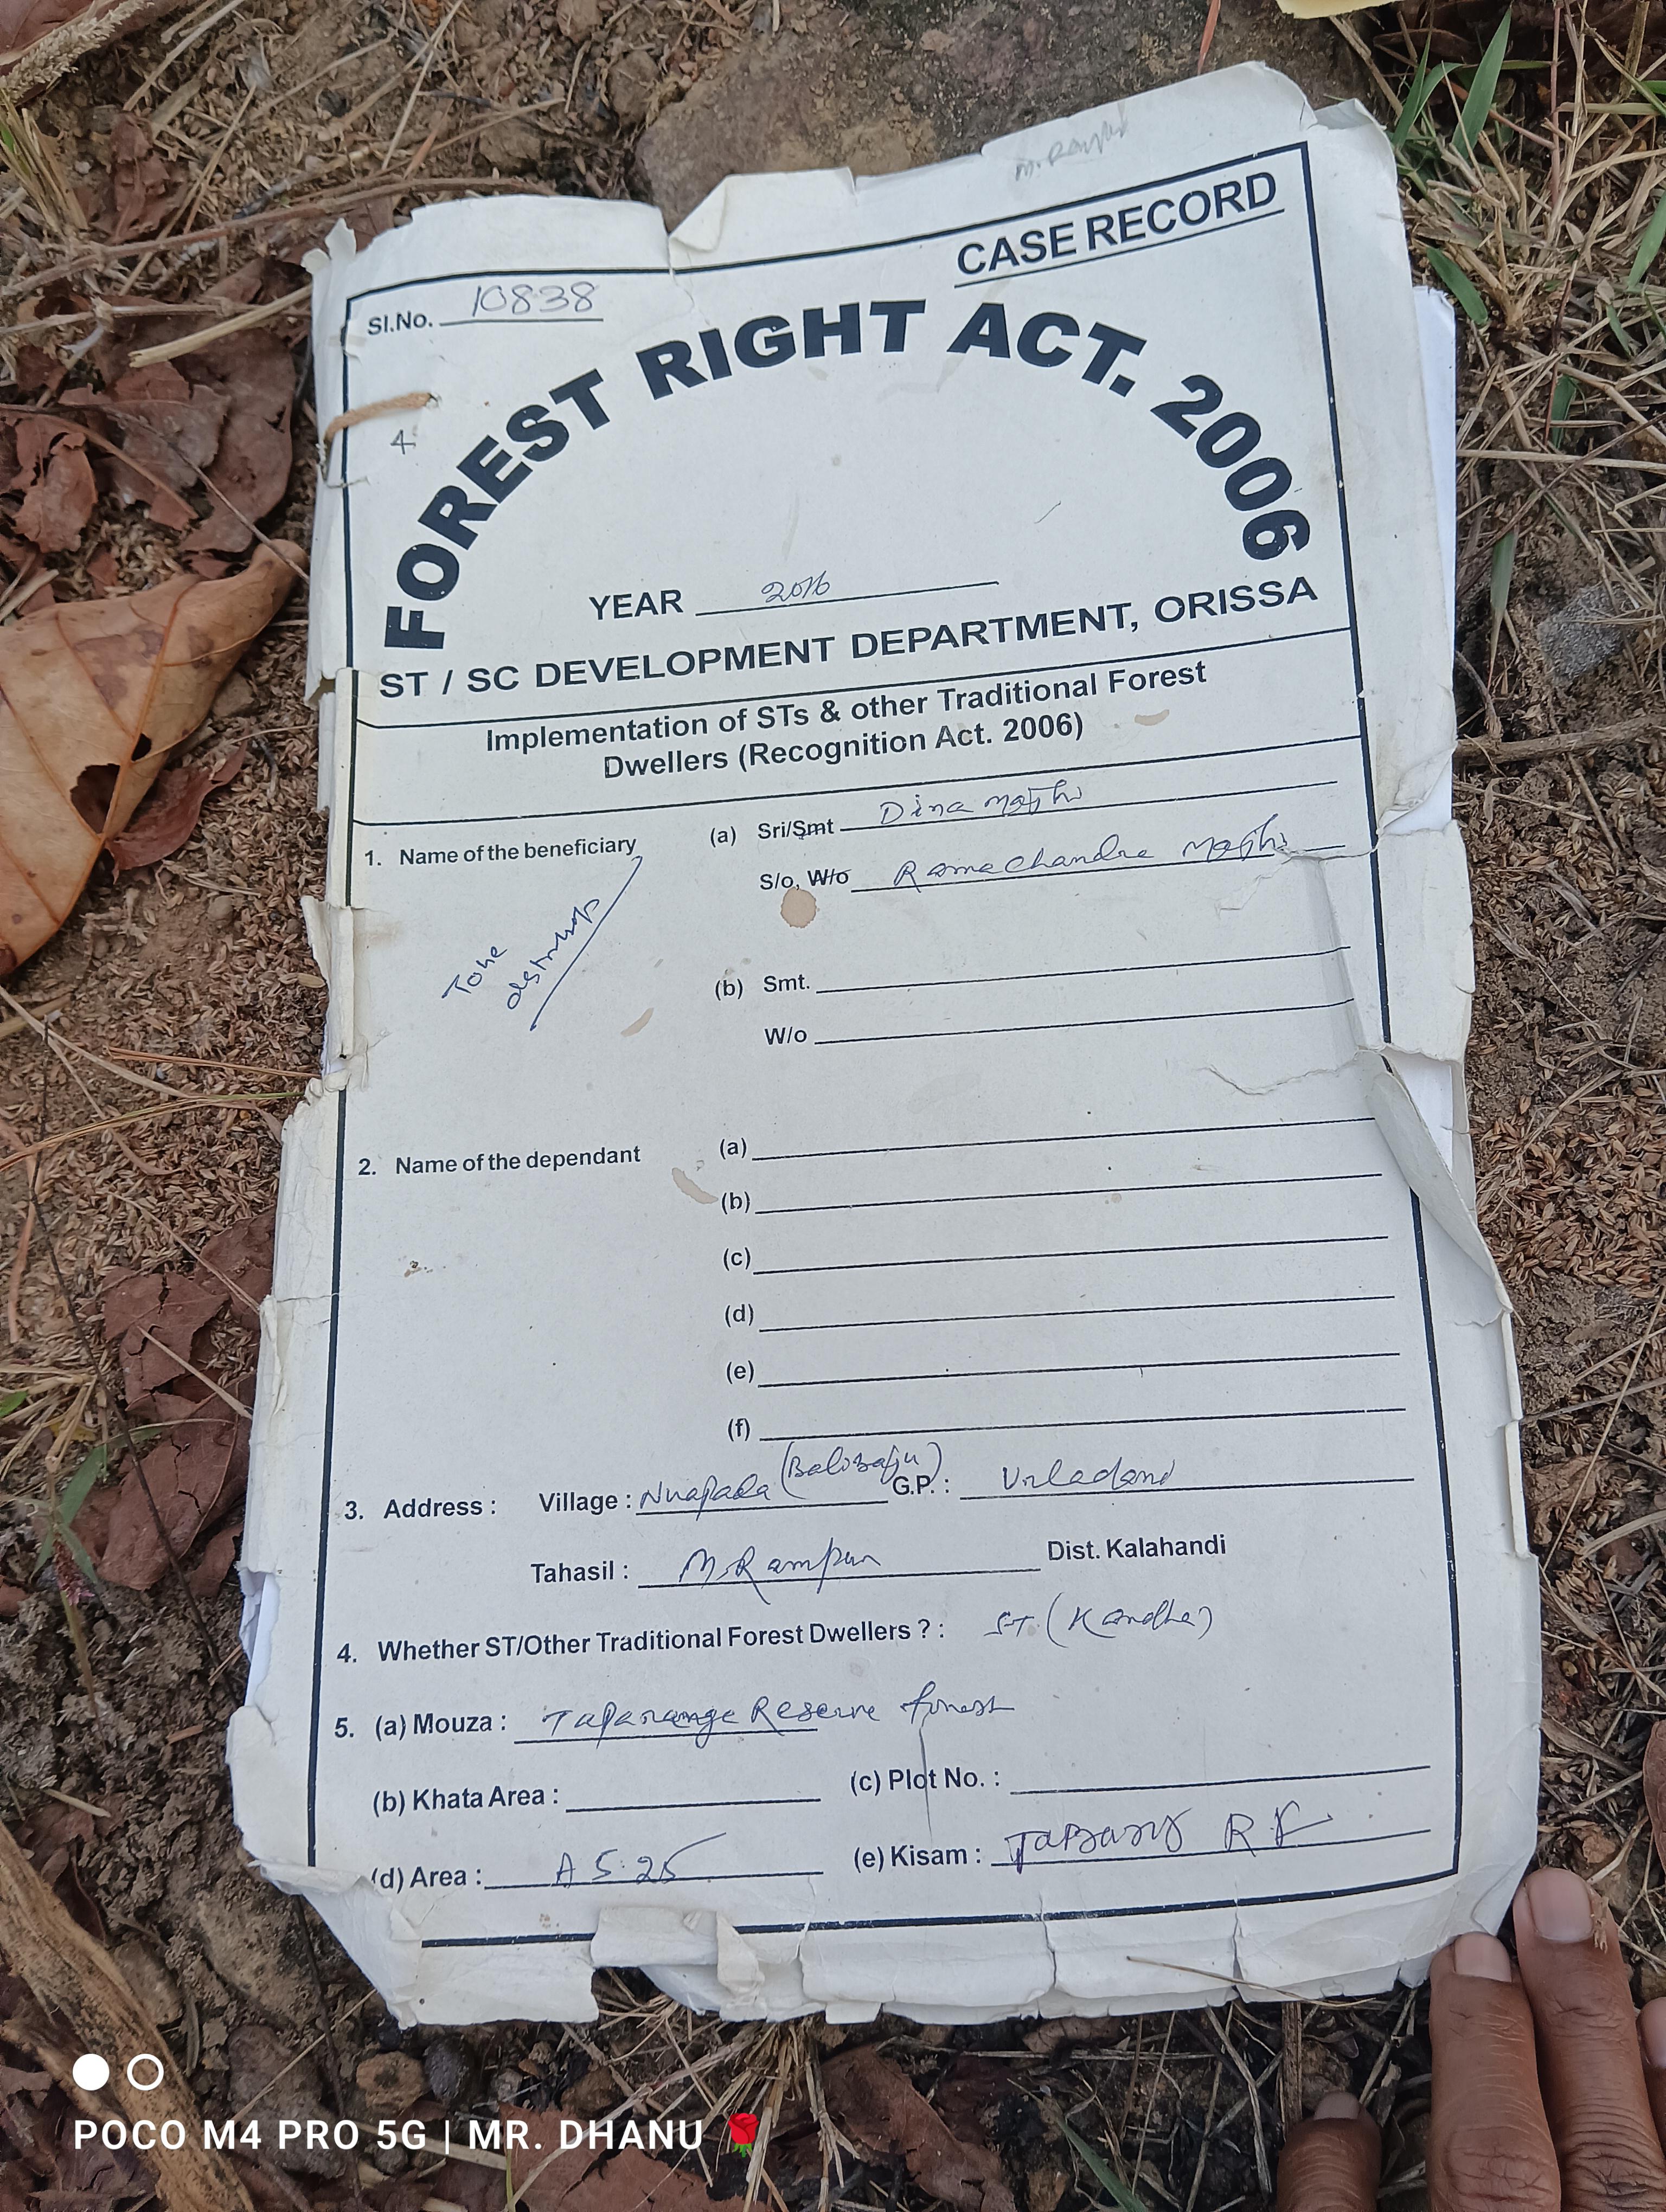 CASE RECORD
Sl.No. 10838
4
FOREST RIGHT ACT. 2006
YEAR 2016
ST / SC DEVELOPMENT DEPARTMENT, ORISSA
Implementation of STs & other Traditional Forest
Dwellers (Recognition Act. 2006)
1. Name of the beneficiary (a) Sri/Smt Dina Majhi
S/o, W/o Ramachandra Majhi
(b) Smt.
W/o
2. Name of the dependant (a)
(b)
(c)
(d)
(e)
(f)
3. Address : Village : Nuapada (Balisaju) G.P. : Urladani
Tahasil : M.Rampur Dist. Kalahandi
4. Whether ST/Other Traditional Forest Dwellers ? : ST (Kandha)
5. (a) Mouza : Taparange Reserve forest
(b) Khata Area : (c) Plot No. :
(d) Area : A 5.25 (e) Kisam : R F
POCO M4 PRO 5G | MR. DHANU 🌹